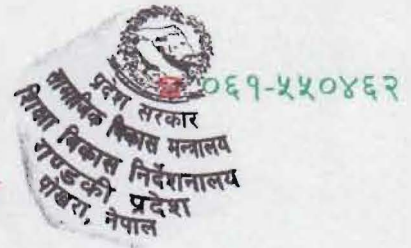 ०६१-५५०४६२
प्रदेश सरकार
सामाजिक विकास मन्त्रालय
शिक्षा विकास निर्देशनालय
गण्डकी प्रदेश
पोखरा, नेपाल